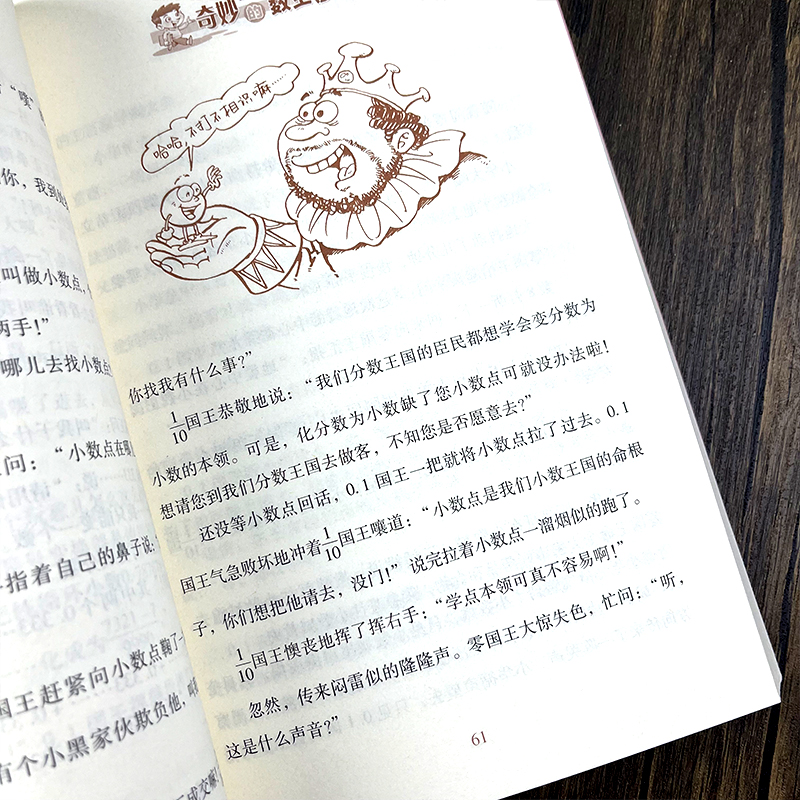 你，我到处
叫做小数点，
两手！”
哪儿去找小数点
问：“小数点在哪
指着自己的鼻子说：
国王赶紧向小数点鞠了
有个小黑家伙欺负他，
奇妙的数王
哈哈，不打不相识嘛……
你找我有什么事？”
1/10国王恭敬地说：“我们分数王国的臣民都想学会变分数为
小数的本领。可是，化分数为小数缺了您小数点可就没办法啦！
想请您到我们分数王国去做客，不知您是否愿意去？”
还没等小数点回话，0.1 国王一把就将小数点拉了过去。0.1
国王气急败坏地冲着1/10国王嚷道：“小数点是我们小数王国的命根
子，你们想把他请去，没门！”说完拉着小数点一溜烟似的跑了。
1/10国王懊丧地挥了挥右手：“学点本领可真不容易啊！”
忽然，传来闷雷似的隆隆声。零国王大惊失色，忙问：“听，
这是什么声音？”
61